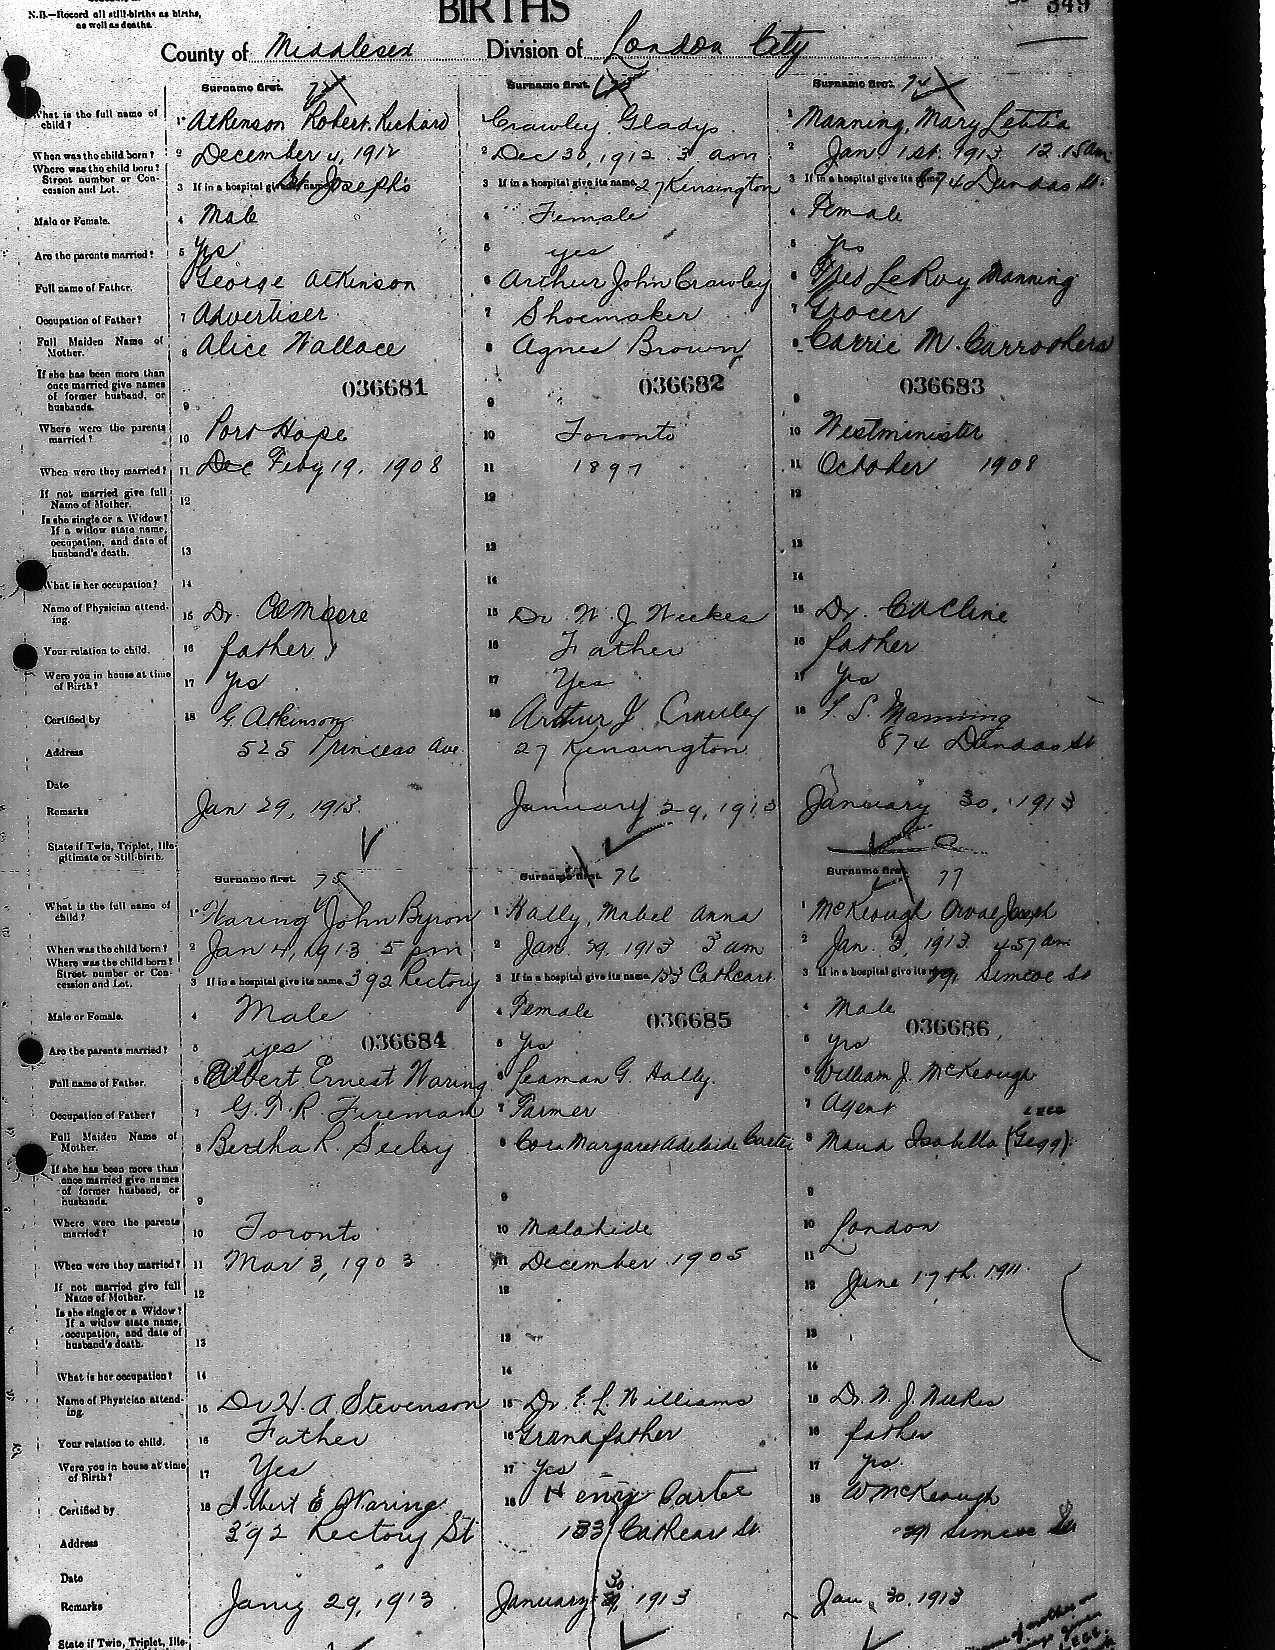 N.B.—Record all still-births as births,
as well as deaths.
BIRTHS
349
County of Middlesex Division of London City
Surname first. 72
Surname first.
Surname first. 74
What is the full name of child?
1 Atkinson Robert Richard
1 Crawley Gladys
1 Manning, Mary Letitia
When was the child born?
2 December 4, 1912
2 Dec 30, 1912 3 am
2 Jan 1st. 1913 12.15 am
Where was the child born? Street number or Concession and Lot.
3 If in a hospital give its name St Joseph's
3 If in a hospital give its name 27 Kensington
3 If in a hospital give its name 874 Dundas St.
Male or Female.
4 Male
4 Female
4 Female
Are the parents married?
5 Yes
5 yes
5 yes
Full name of Father.
George Atkinson
6 Arthur John Crawley
6 Fred LeRoy Manning
Occupation of Father?
7 Advertiser
7 Shoemaker
7 Grocer
Full Maiden Name of Mother.
8 Alice Wallace
8 Agnes Brown
8 Carrie M. Carrothers
If she has been more than once married give names of former husband, or husbands.
036681
036682
036683
9
9
9
Where were the parents married?
10 Port Hope
10 Toronto
10 Westminister
When were they married?
11 Dec Feby 19, 1908
11 1897
11 October 1908
If not married give full Name of Mother.
12
12
12
Is she single or a Widow? If a widow state name, occupation, and date of husband's death.
13
13
13
What is her occupation?
14
14
14
Name of Physician attending.
15 Dr.
15 Dr. W. J. Weekes
15 Dr. Cline
Your relation to child.
16 father
16 Father
16 father
Were you in house at time of Birth?
17 yes
17 Yes
17 yes
Certified by
18 G. Atkinson
18 Arthur J. Crawley
18 Manning
Address
525 Princess Ave.
27 Kensington
874 Dundas St
Date
Remarks
Jan 29, 1913
January 29, 1913
January 30, 1913
State if Twin, Triplet, Illegitimate or Still-birth.
Surname first. 75
Surname first. 76
Surname first. 77
What is the full name of child?
1 Waring John Byron
1 Hally, Mabel Anna
1 McKeough Orval Joseph
When was the child born?
2 Jan 4, 1913 5 pm
2 Jan. 29, 1913 3 am
2 Jan. 3, 1913 4.57 am
Where was the child born? Street number or Concession and Lot.
3 If in a hospital give its name 392 Rectory
3 If in a hospital give its name 133 Cathcart
3 If in a hospital give its name Simcoe St
Male or Female.
4 Male
4 Female
4 Male
036684
036685
036686
Are the parents married?
5 yes
5 yes
5 yes
Full name of Father.
6 Albert Ernest Waring
6 Leaman G. Hally.
6 William J. McKeough
Occupation of Father?
7 G. T. R Fireman
7 Farmer
7 Agent
Full Maiden Name of Mother.
8 Bertha R. Seeley
8 Cora Margaret Adelaide Carter
8 Maud Isabella (Gegg)
If she has been more than once married give names of former husband, or husbands.
9
9
9
Where were the parents married?
10 Toronto
10 Malahide
10 London
When were they married?
11 Mar 3, 1903
11 December 1905
11
If not married give full Name of Mother.
12
12
12 June 17th. 1911.
Is she single or a Widow? If a widow state name, occupation, and date of husband's death.
13
13
13
What is her occupation?
14
14
14
Name of Physician attending.
15 Dr H. A. Stevenson
15 Dr. E. L. Williams
15 Dr. W. J. Weekes
Your relation to child.
16 Father
16 Grandfather
16 father
Were you in house at time of Birth?
17 Yes
17 yes
17 yes.
Certified by
18 Albert E Waring
18 Henry Carter
18 W McKeough
Address
392 Rectory St
133 Cathcart St.
Simcoe St
Date
Remarks
Jany 29, 1913
January 30, 1913
Jan. 30, 1913
State if Twin, Triplet, Ille-